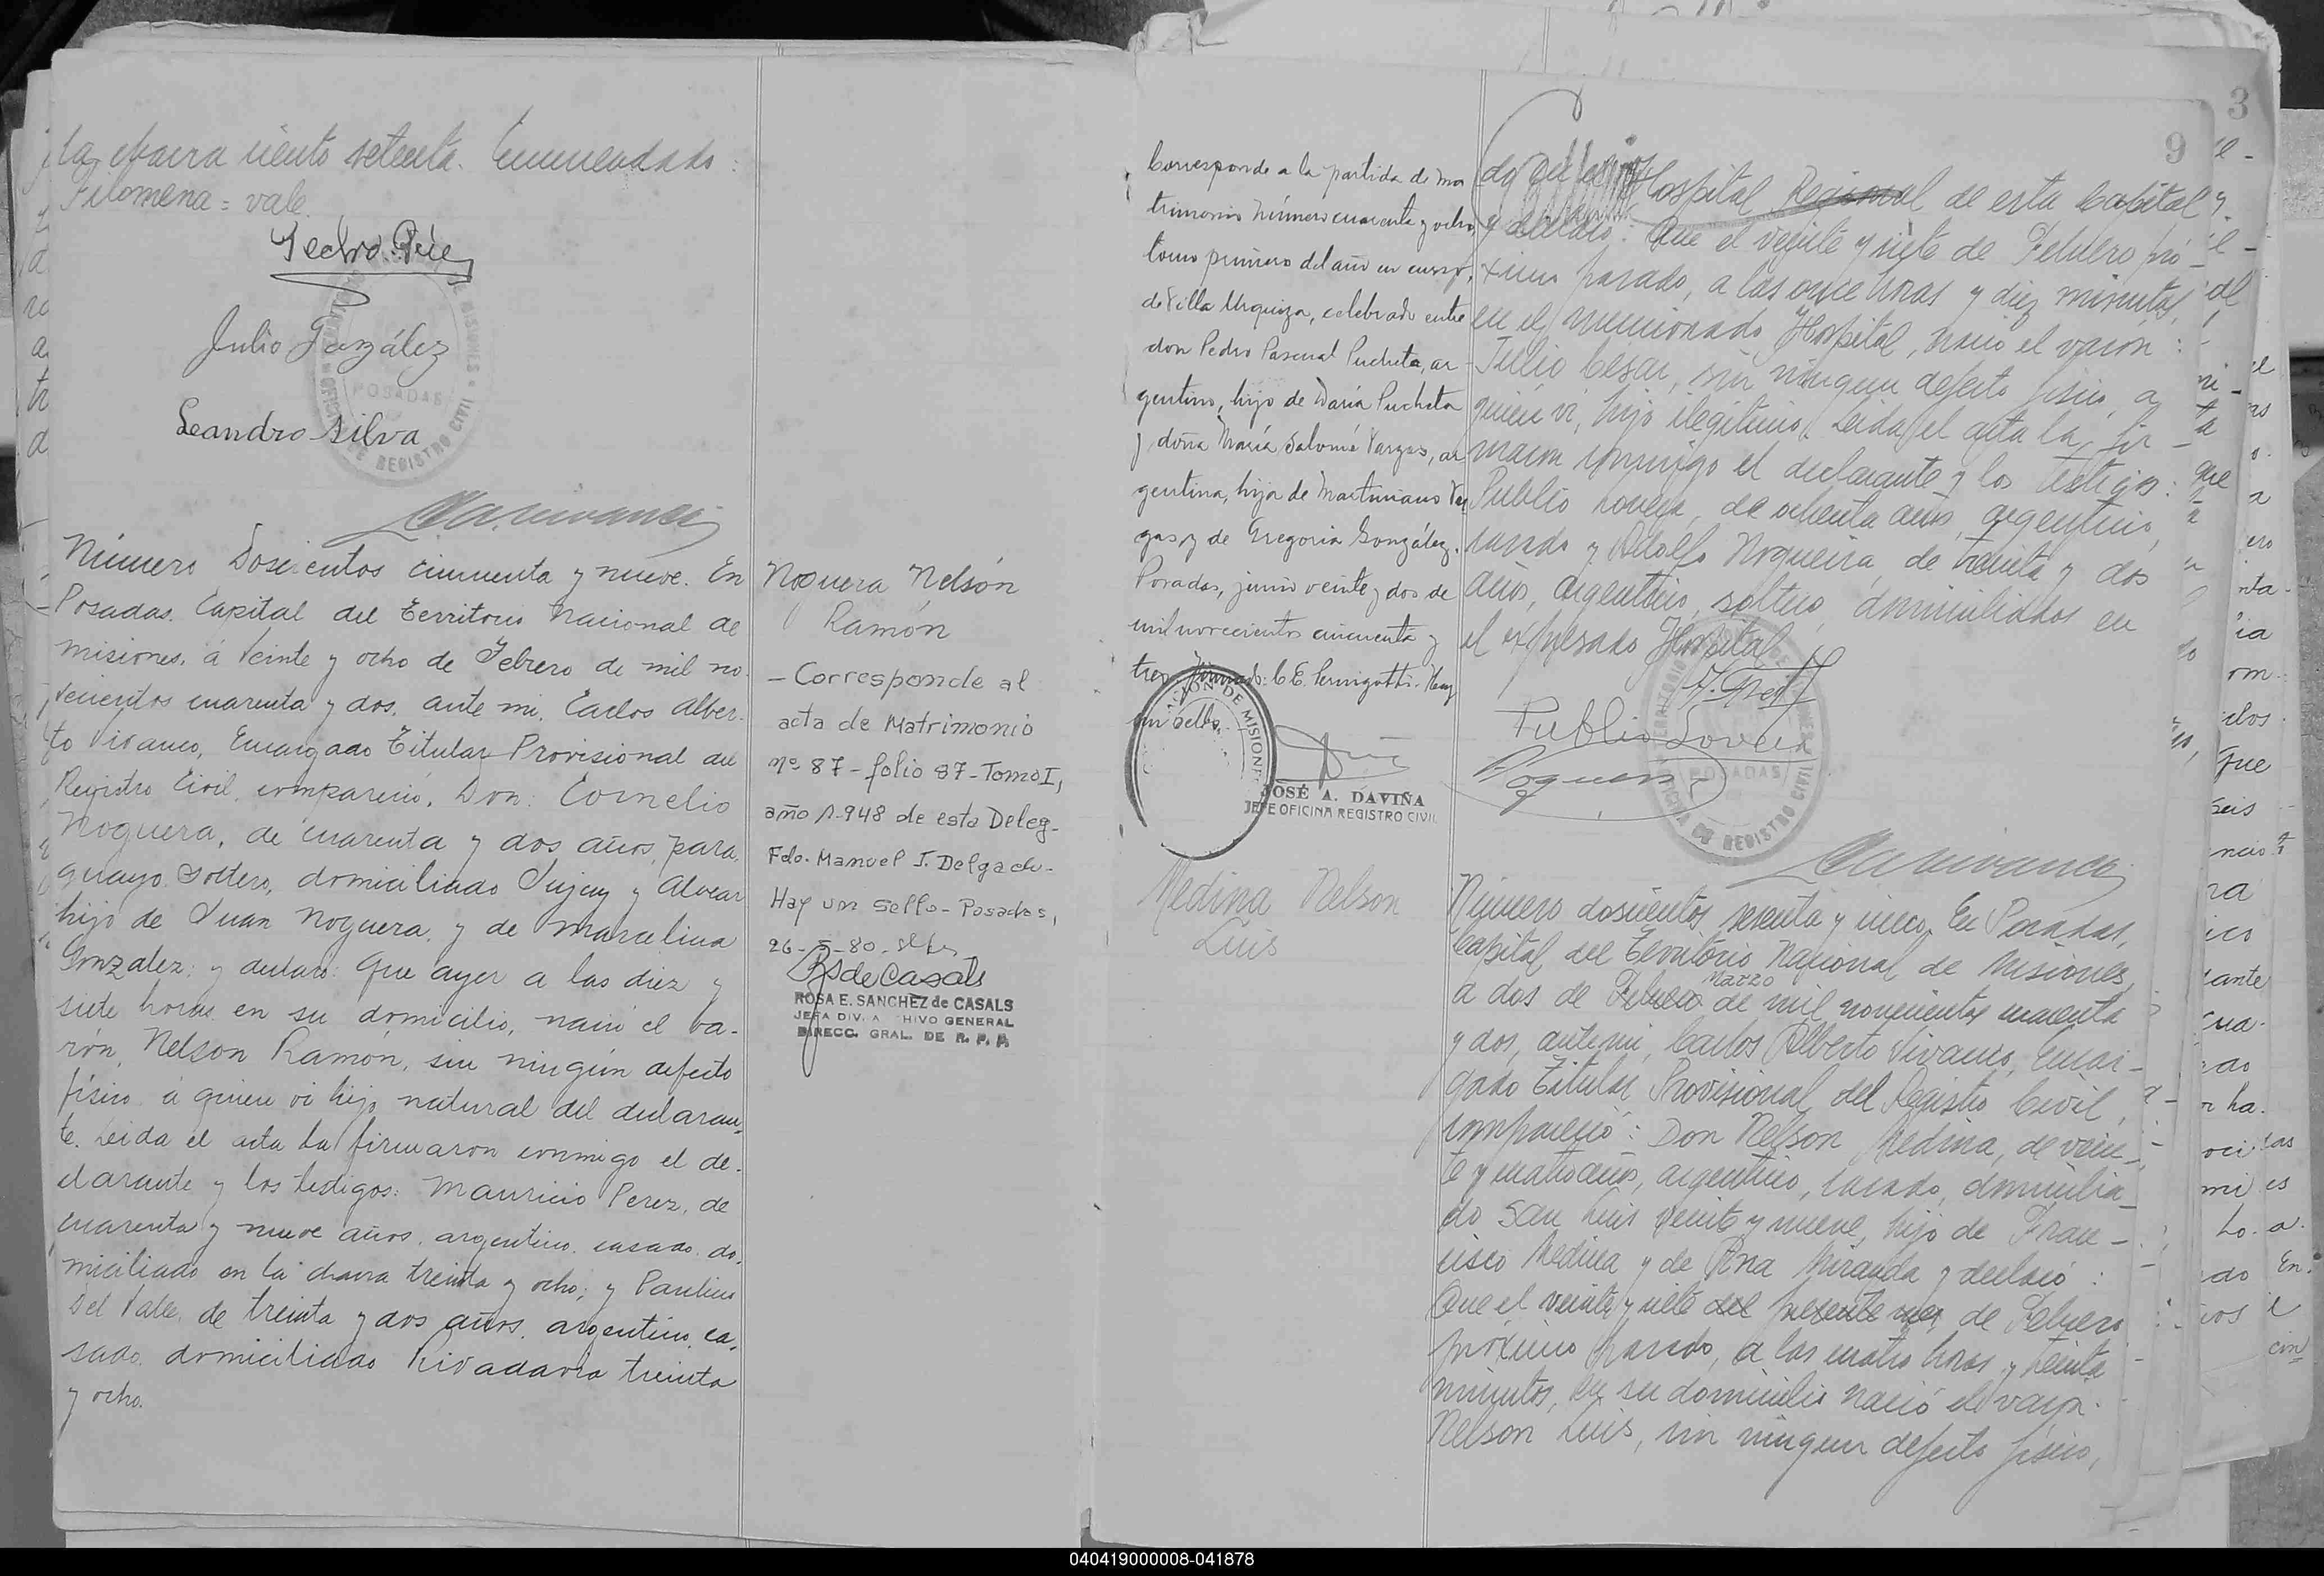 la chacra ciento setenta. Enmendado:
Filomena = vale.
Pedro
Julio González
Leandro Silva
POSADAS
OFICINA DE REGISTRO CIVIL
Número Doscientos cincuenta y nueve. En
Posadas. Capital del Territorio Nacional de
Misiones, á veinte y ocho de Febrero de mil no-
vecientos cuarenta y dos, ante mi, Carlos Alber-
to Vivanco, Encargado Titular Provisional del
Registro Civil, compareció, Don: Cornelio
Noguera, de cuarenta y dos años, para-
guayo soltero, domiciliado Jujuy y Alvear
hijo de Juan Noguera, y de Marcelina
Gonzalez; y declaró: Que ayer a las diez y
siete horas en su domicilio, nació el va-
rón, Nelson Ramón, sin ningún defecto
físico á quien vi hijo natural del declaran-
te. Leida el acta la firmaron conmigo el de-
clarante y los testigos: Mauricio Perez, de
cuarenta y nueve años, argentino, casado, do-
miciliado en la chacra treinta y ocho; y Paulino
Del Valle, de treinta y dos años, argentino, ca-
sado, domiciliado Rivadavia treinta
y ocho.
Noguera Nelsón
Ramón
- Corresponde al
acta de Matrimonio
nº 87 - folio 87 - Tomo I,
año 1.948 de esta Deleg-
Fdo. Manuel J. Delgado-
Hay un sello - Posadas,
26-5-80-
RSdeCasals
ROSA E. SANCHEZ de CASALS
JEFA DIV. A HIVO GENERAL
DIRECC. GRAL. DE R. P. P.
Corresponde a la partida de ma
trimonio número cuarenta y ocho,
tomo primero del año en curso,
de Villa Urquiza, celebrado entre
don Pedro Pascual Pucheta, ar-
gentino, hijo de María Pucheta
y doña María Salomé Vargas, ar
gentina, hija de Martiniano Var
gas y de Gregoria González.
Posadas, junio veinte y dos de
mil novecientos cincuenta y
tres. Firmado: C. E. Hay
un sello.
DE MISIONES
JOSÉ A. DAVIÑA
JEFE OFICINA REGISTRO CIVIL
Medina Nelson
Luis
3
9
do en el Hospital Regional de esta Capital y
y declaró: Que el veinte y siete de Febrero pró-
ximo pasado, a las once horas y diez minutos,
en el mencionado Hospital, nació el varón:
Julio Cesar, sin ningun defecto fisico, a
quién vi, hijo ilegitimo. Leida el acta la fir-
maron conmigo el declarante y los testigos:
Publio Lovera, de ochenta años, argentino,
casado y Adolfo Nogueira, de treinta y dos
años, argentino, soltero, domiciliados en
el expresado Hospital.
Publio Lovera
POSADAS
OFICINA DE REGISTRO CIVIL
Número doscientos sesenta y cinco. En Posadas,
Capital del Territorio Nacional de Misiones,
Marzo
a dos de Febrero de mil novecientos cuarenta
y dos, ante mi, Carlos Alberto Vivanco, Encar-
gado Titular Provisional del Registro Civil,
compareció: Don Nelson Medina, de vein-
te y cuatro años, argentino, casado, domicilia-
do San Luis veinte y nueve, hijo de Fran-
cisco Medina y de Ana Miranda y declaró:
Que el veinte y siete del presente mes de Febrero
próximo pasado, a las cuatro horas y treinta
minutos, en su domicilio nació el varón.
Nelson Luis, sin ningun defecto fisico,
040419000008-041878